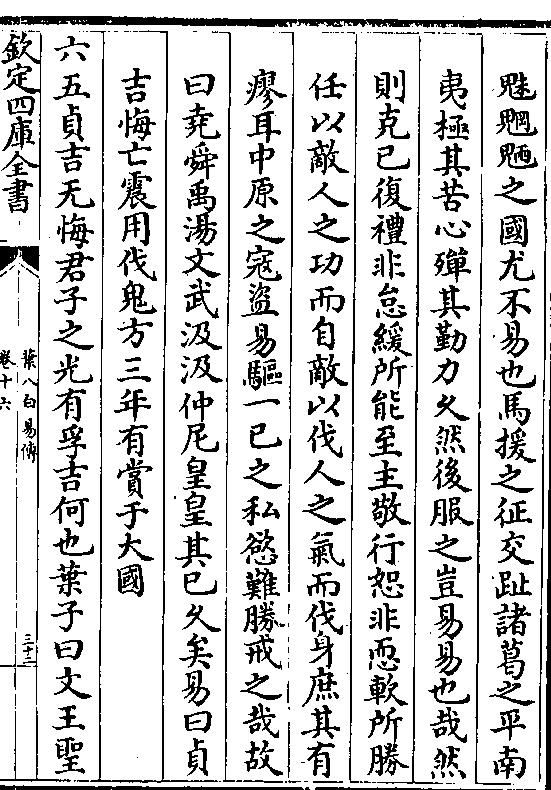 魅魍魎之國尤不易也馬援之征交趾諸葛之平南
夷極其苦心殫其勤力久然後服之豈易易也哉然
則克已復禮非怠緩所能至主敬行恕非恧軟所勝
任以敵人之功而自敵以伐人之氣而伐身庶其有
瘳耳中原之寇盗易驅一已之私慾難勝戒之哉故
曰堯舜禹湯文武汲汲仲尼皇皇其已久矣易曰貞
吉悔亡震用伐鬼方三年有賞于大國
六五貞吉无悔君子之光有孚吉何也葉子曰文王聖
欽定四庫全書
葉八白易傳
卷十六
三十二